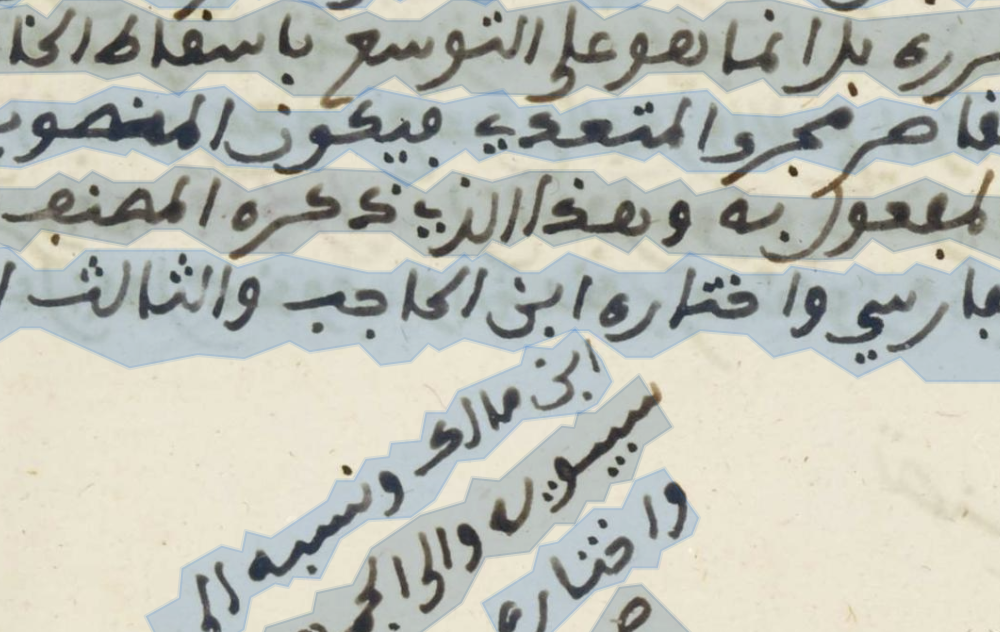 بل انما هو على التوسع باسقاط
مجرى المتعدي فيكون المنصوب
المفعول به وهذا الذي ذكره المصنف
الفارسي واختاره ابن الحاجب والثالث
ابن مالك ونسبه الى
سيبويه والى
واختاره